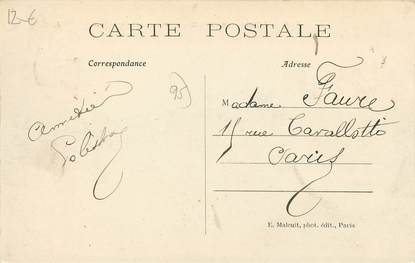 12 €
CARTE POSTALE
Correspondance
Adresse
95
Madame Faure
15 rue Cavallotti
Paris
E. Malcuit, phot. édit., Paris